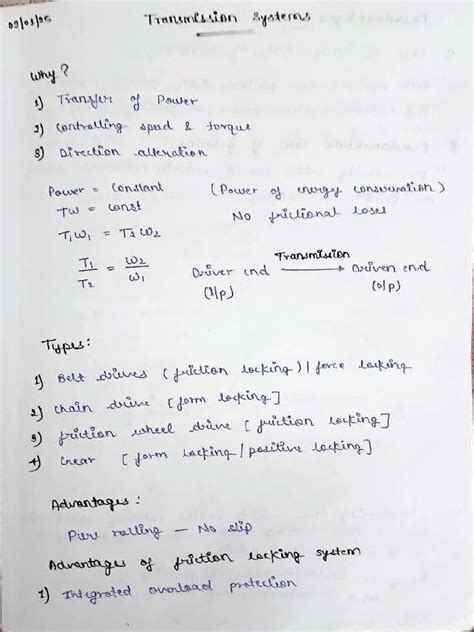 09/01/25 Transmission Systems
Why?
1) Transfer of Power
2) Controlling speed & torque
3) Direction alteration
Power = constant (Power of energy conservation)
TW = const No frictional loses
T₁ω₁ = T₂ω₂
T₁/T₂ = ω₂/ω₁ Driver end Transmission → Driven end
(I/p) (o/p)
Types:
1) Belt drives (friction locking) / force locking
2) Chain drive [form locking]
3) friction wheel drive [friction locking]
4) Gear [form locking / positive locking]
Advantages:
Pure rolling — No slip
Advantages of friction locking system
1) Integrated overload protection